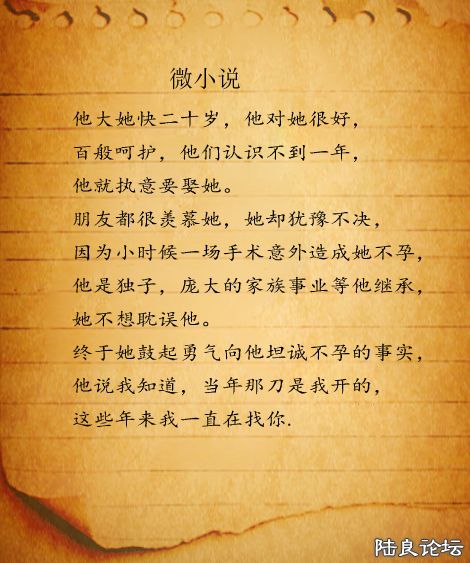 微小说
他大她快二十岁，他对她很好，
百般呵护，他们认识不到一年，
他就执意要娶她。
朋友都很羡慕她，她却犹豫不决，
因为小时候一场手术意外造成她不孕，
他是独子，庞大的家族事业等他继承，
她不想耽误他。
终于她鼓起勇气向他坦诚不孕的事实，
他说我知道，当年那刀是我开的，
这些年来我一直在找你.
陆良论坛